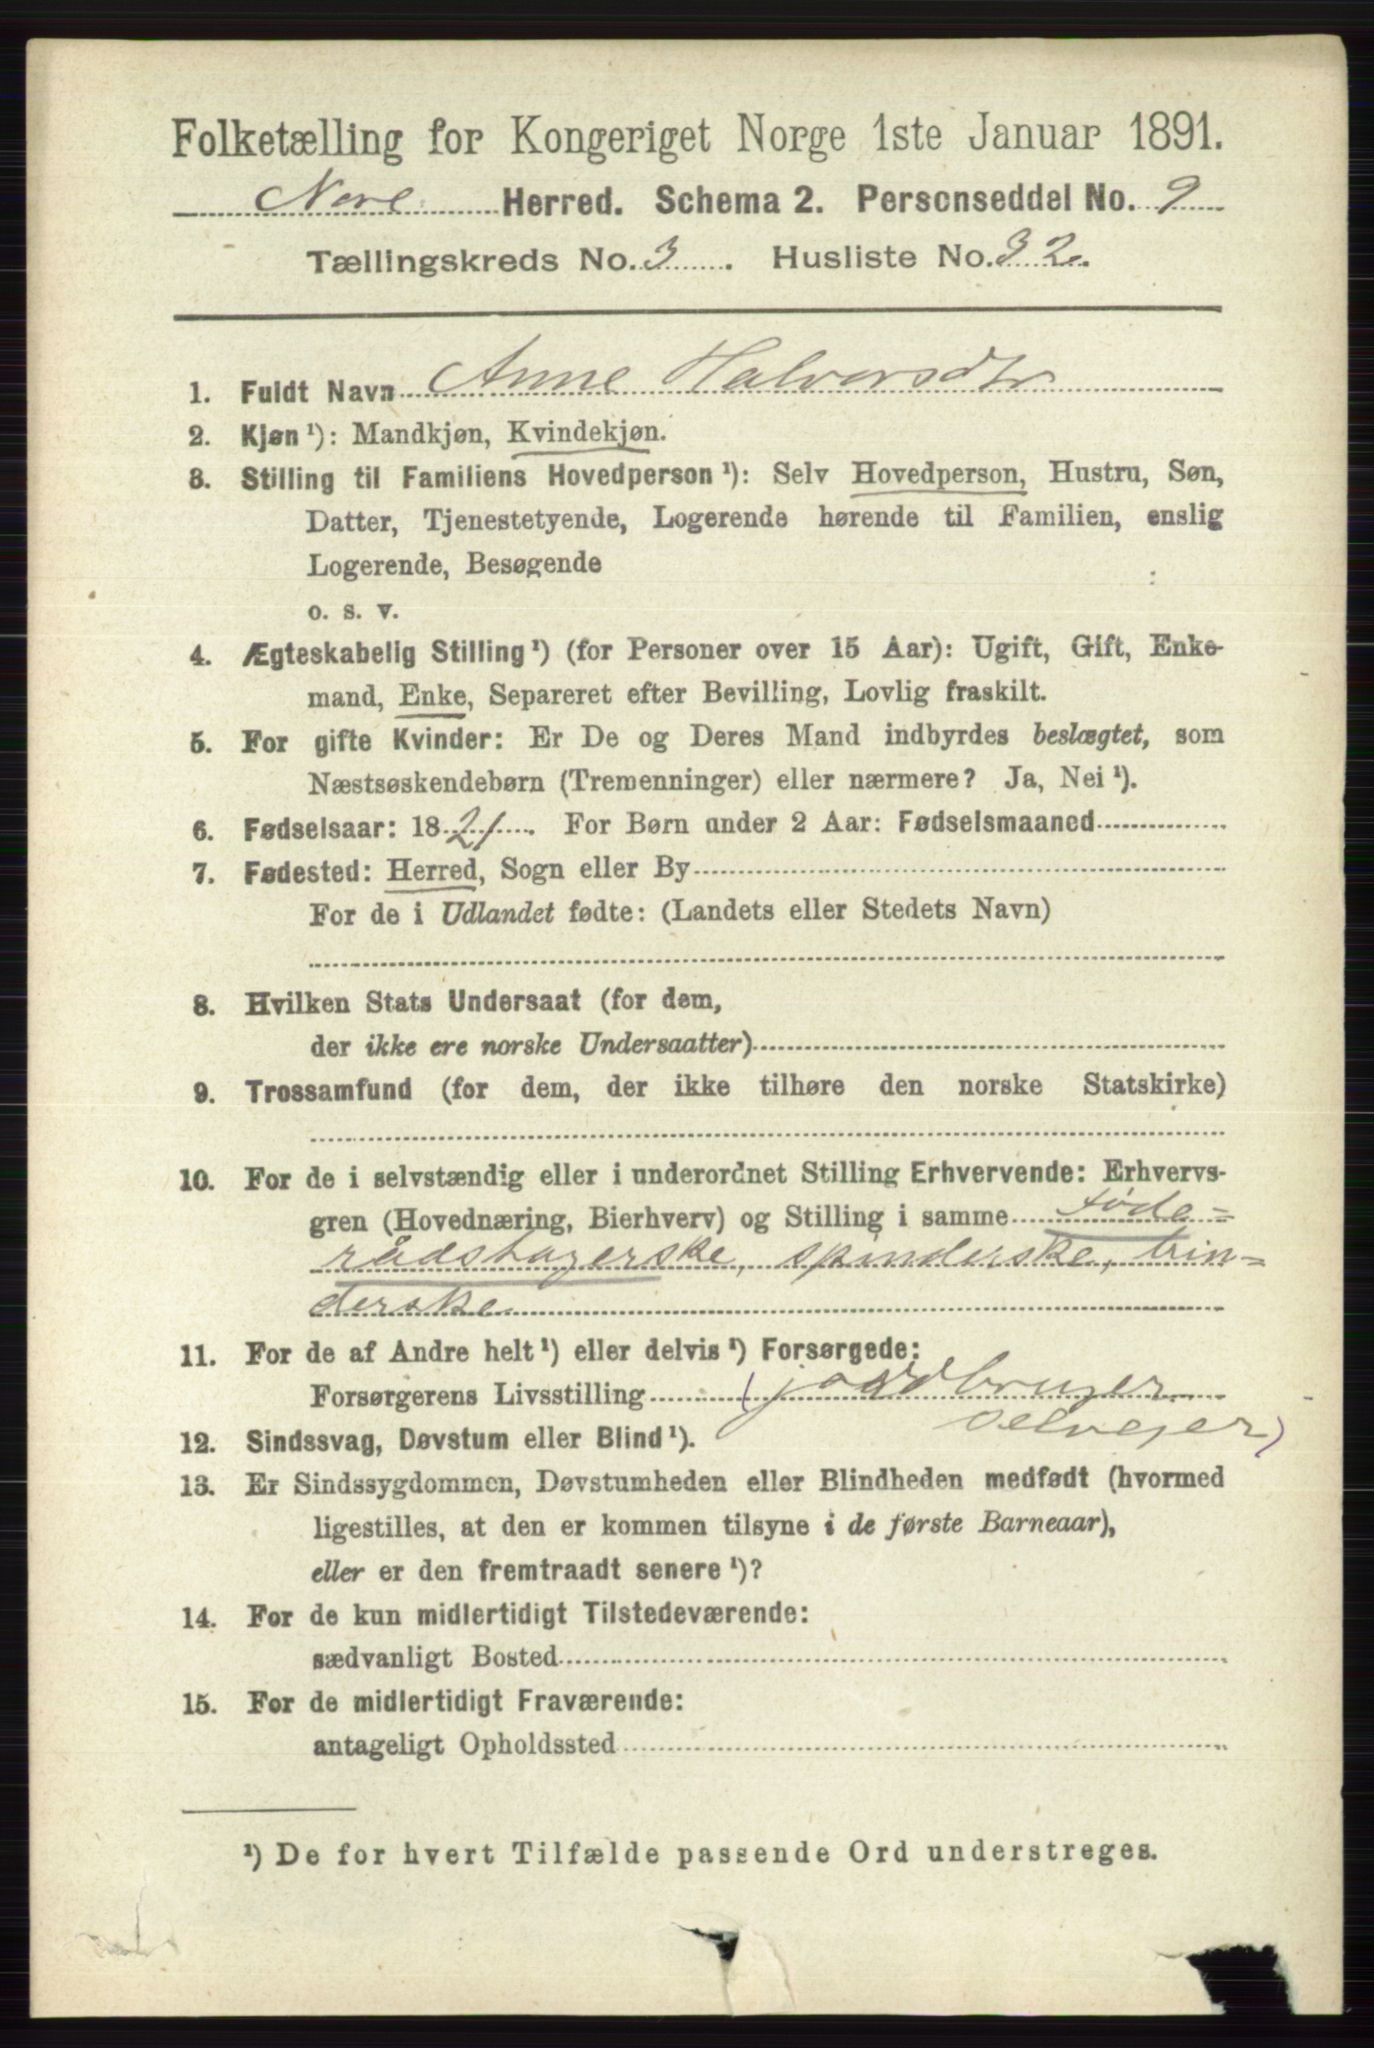 Folketælling for Kongeriget Norge 1ste Januar 1891.
Nore Herred. Schema 2. Personseddel No. 9
Tællingskreds No. 3. Husliste No. 32.
1. Fuldt Navn Anne Halvorsdtr
2. Kjøn ¹): Mandkjøn, Kvindekjøn.
3. Stilling til Familiens Hovedperson ¹): Selv Hovedperson, Hustru, Søn,
Datter, Tjenestetyende, Logerende hørende til Familien, enslig
Logerende, Besøgende
o. s. v.
4. Ægteskabelig Stilling ¹) (for Personer over 15 Aar): Ugift, Gift, Enke-
mand, Enke, Separeret efter Bevilling, Lovlig fraskilt.
5. For gifte Kvinder: Er De og Deres Mand indbyrdes beslægtet, som
Næstsøskendebørn (Tremenninger) eller nærmere? Ja, Nei ¹).
6. Fødselsaar: 1821. For Børn under 2 Aar: Fødselsmaaned
7. Fødested: Herred, Sogn eller By
For de i Udlandet fødte: (Landets eller Stedets Navn)
8. Hvilken Stats Undersaat (for dem,
der ikke ere norske Undersaatter)
9. Trossamfund (for dem, der ikke tilhøre den norske Statskirke)
10. For de i selvstændig eller i underordnet Stilling Erhvervende: Erhvervs-
gren (Hovednæring, Bierhverv) og Stilling i samme føde=
rådstagerske, spinderske, bin=
derske
11. For de af Andre helt ¹) eller delvis ¹) Forsørgede:
Forsørgerens Livsstilling (jordbruger
selvejer)
12. Sindssvag, Døvstum eller Blind ¹).
13. Er Sindssygdommen, Døvstumheden eller Blindheden medfødt (hvormed
ligestilles, at den er kommen tilsyne i de første Barneaar),
eller er den fremtraadt senere ¹)?
14. For de kun midlertidigt Tilstedeværende:
sædvanligt Bosted
15. For de midlertidigt Fraværende:
antageligt Opholdssted
¹) De for hvert Tilfælde passende Ord understreges.